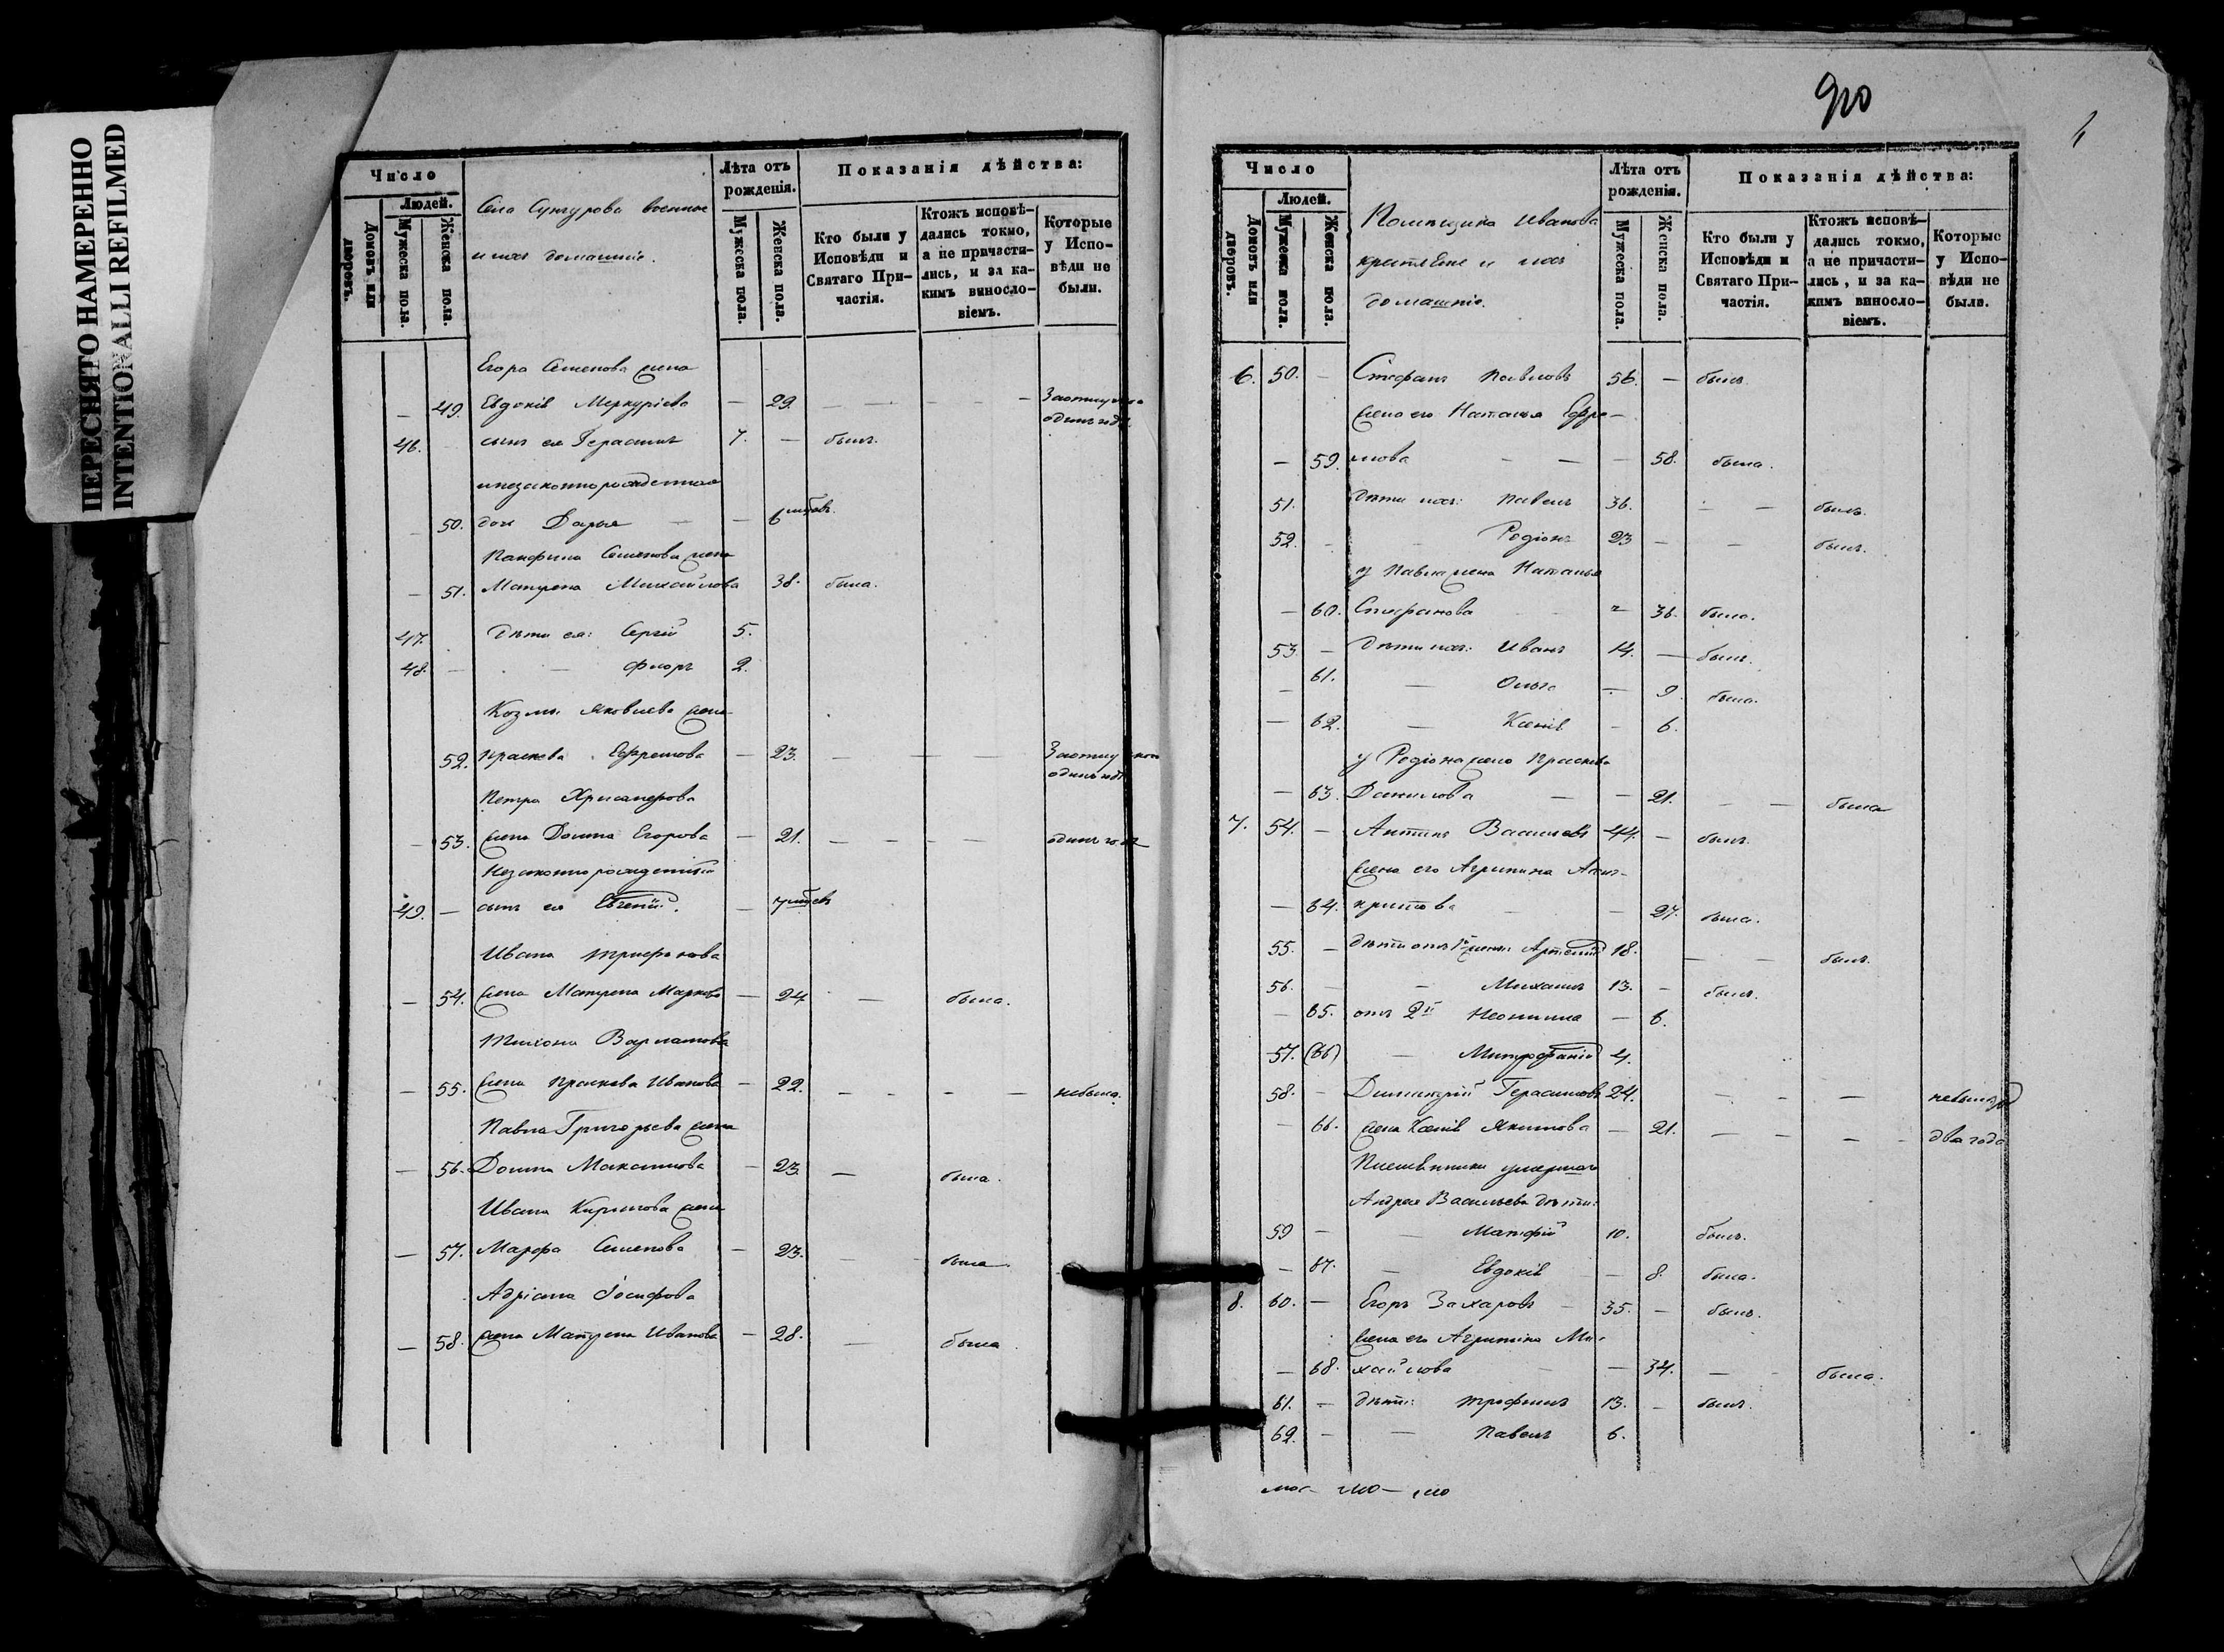 ПЕРЕСНЯТО НАМЕРЕННО
INTENTIONALLI REFILMED
Число
Людей.
Домовъ или дворовъ.
Мужеска пола.
Женска пола.
Села Сунгурова военные
и ихъ домашніе.
Лѣта отъ рожденія.
Мужеска пола.
Женска пола.
Показанія дѣйства:
Кто были у Исповѣди и Святаго Причастія.
Ктожъ исповѣдались токмо, а не причастились, и за какимъ винословіемъ.
Которые у Исповѣди не были.
Егора Семенова жена
— 49. Евдокія Меркуріева — 29. — — —
одинъ годъ
46. сынъ ея Герасимъ 7. — былъ.
незаконнорожденная
— 50. дочь Дарья — — 6
Панфила Семенова жена
— 51. Матрена Михайлова 38. была.
47. Дѣти ея: Сергій 5.
48. — — Флоръ 2.
Козмы Яковлева жена
52. Праскева Ефремова — 23. — — —
одинъ годъ
Петра Хрисанфова
— 53. жена Домна Егорова — 21. — — — — одинъ годъ
Незаконнорожденный
49. — сынъ ея Евгеній. — 7
Ивана Трифонова
— 54. жена Матрена Маркова — 24 — была.
Тихона Варламова
— 55. жена Праскева Иванова — 22. — — — — небыла.
Павла Григорьева жена
— 56. Домна Максимова — 23 — была.
Ивана Кирилова жена
— 57. Марфа Семенова — 23. — была.
Адріана Іосифова
— 58. жена Матрена Иванова — 28. — была.
920
Число
Людей.
Домовъ или дворовъ.
Мужеска пола.
Женска пола.
Помѣщика Иванова
крестьяне и ихъ
домашніе.
Лѣта отъ рожденія.
Мужеска пола.
Женска пола.
Показанія дѣйства:
Кто были у Исповѣди и Святаго Причастія.
Ктожъ исповѣдались токмо, а не причастились, и за какимъ винословіемъ.
Которые у Исповѣди не были.
6. 50. — Стефанъ Павловъ 56. — былъ.
жена его Наталья Ефре—
— 59. мова — — — 58. была.
51. дѣти ихъ: Павелъ 36. — — былъ.
52. — — Родіонъ 23 — — былъ.
у Павла жена Наталья
— 60. Стефанова — 36. была.
53. — Дѣти ихъ: Иванъ 14. — былъ.
— 61. — Ольга — 9. была.
— 62. — Ксенія — 6.
у Родіона жена Праскева
— 63. Данилова — — 21. — — была
7. 54. — Антипъ Васильевъ 44. — былъ.
жена его Агрипина
— 64. — 27. была.
55. — дѣти отъ 1й жены: Арсеній 18. — — былъ.
56. — — Михаилъ 13. — былъ.
— 65. отъ 2й Неонилла — 6.
57. (66) — Митрофаній 4.
58. — Димитрій Герасимовъ 24. — — —
— 66. жена Ксенія Якимова — 21. — — — — два года
Племянники умершаго
Андрея Васильева дѣти:
59 — — Матфій 10. былъ.
— 67. — Евдокія — 8. была.
8. 60. — Егоръ Захаровъ — 35. — былъ.
жена его Агрипина Ми-
— 68. хайлова — — 34. — была.
61. — дѣти: Трофимъ 13. — былъ.
62. — — Павелъ 6.